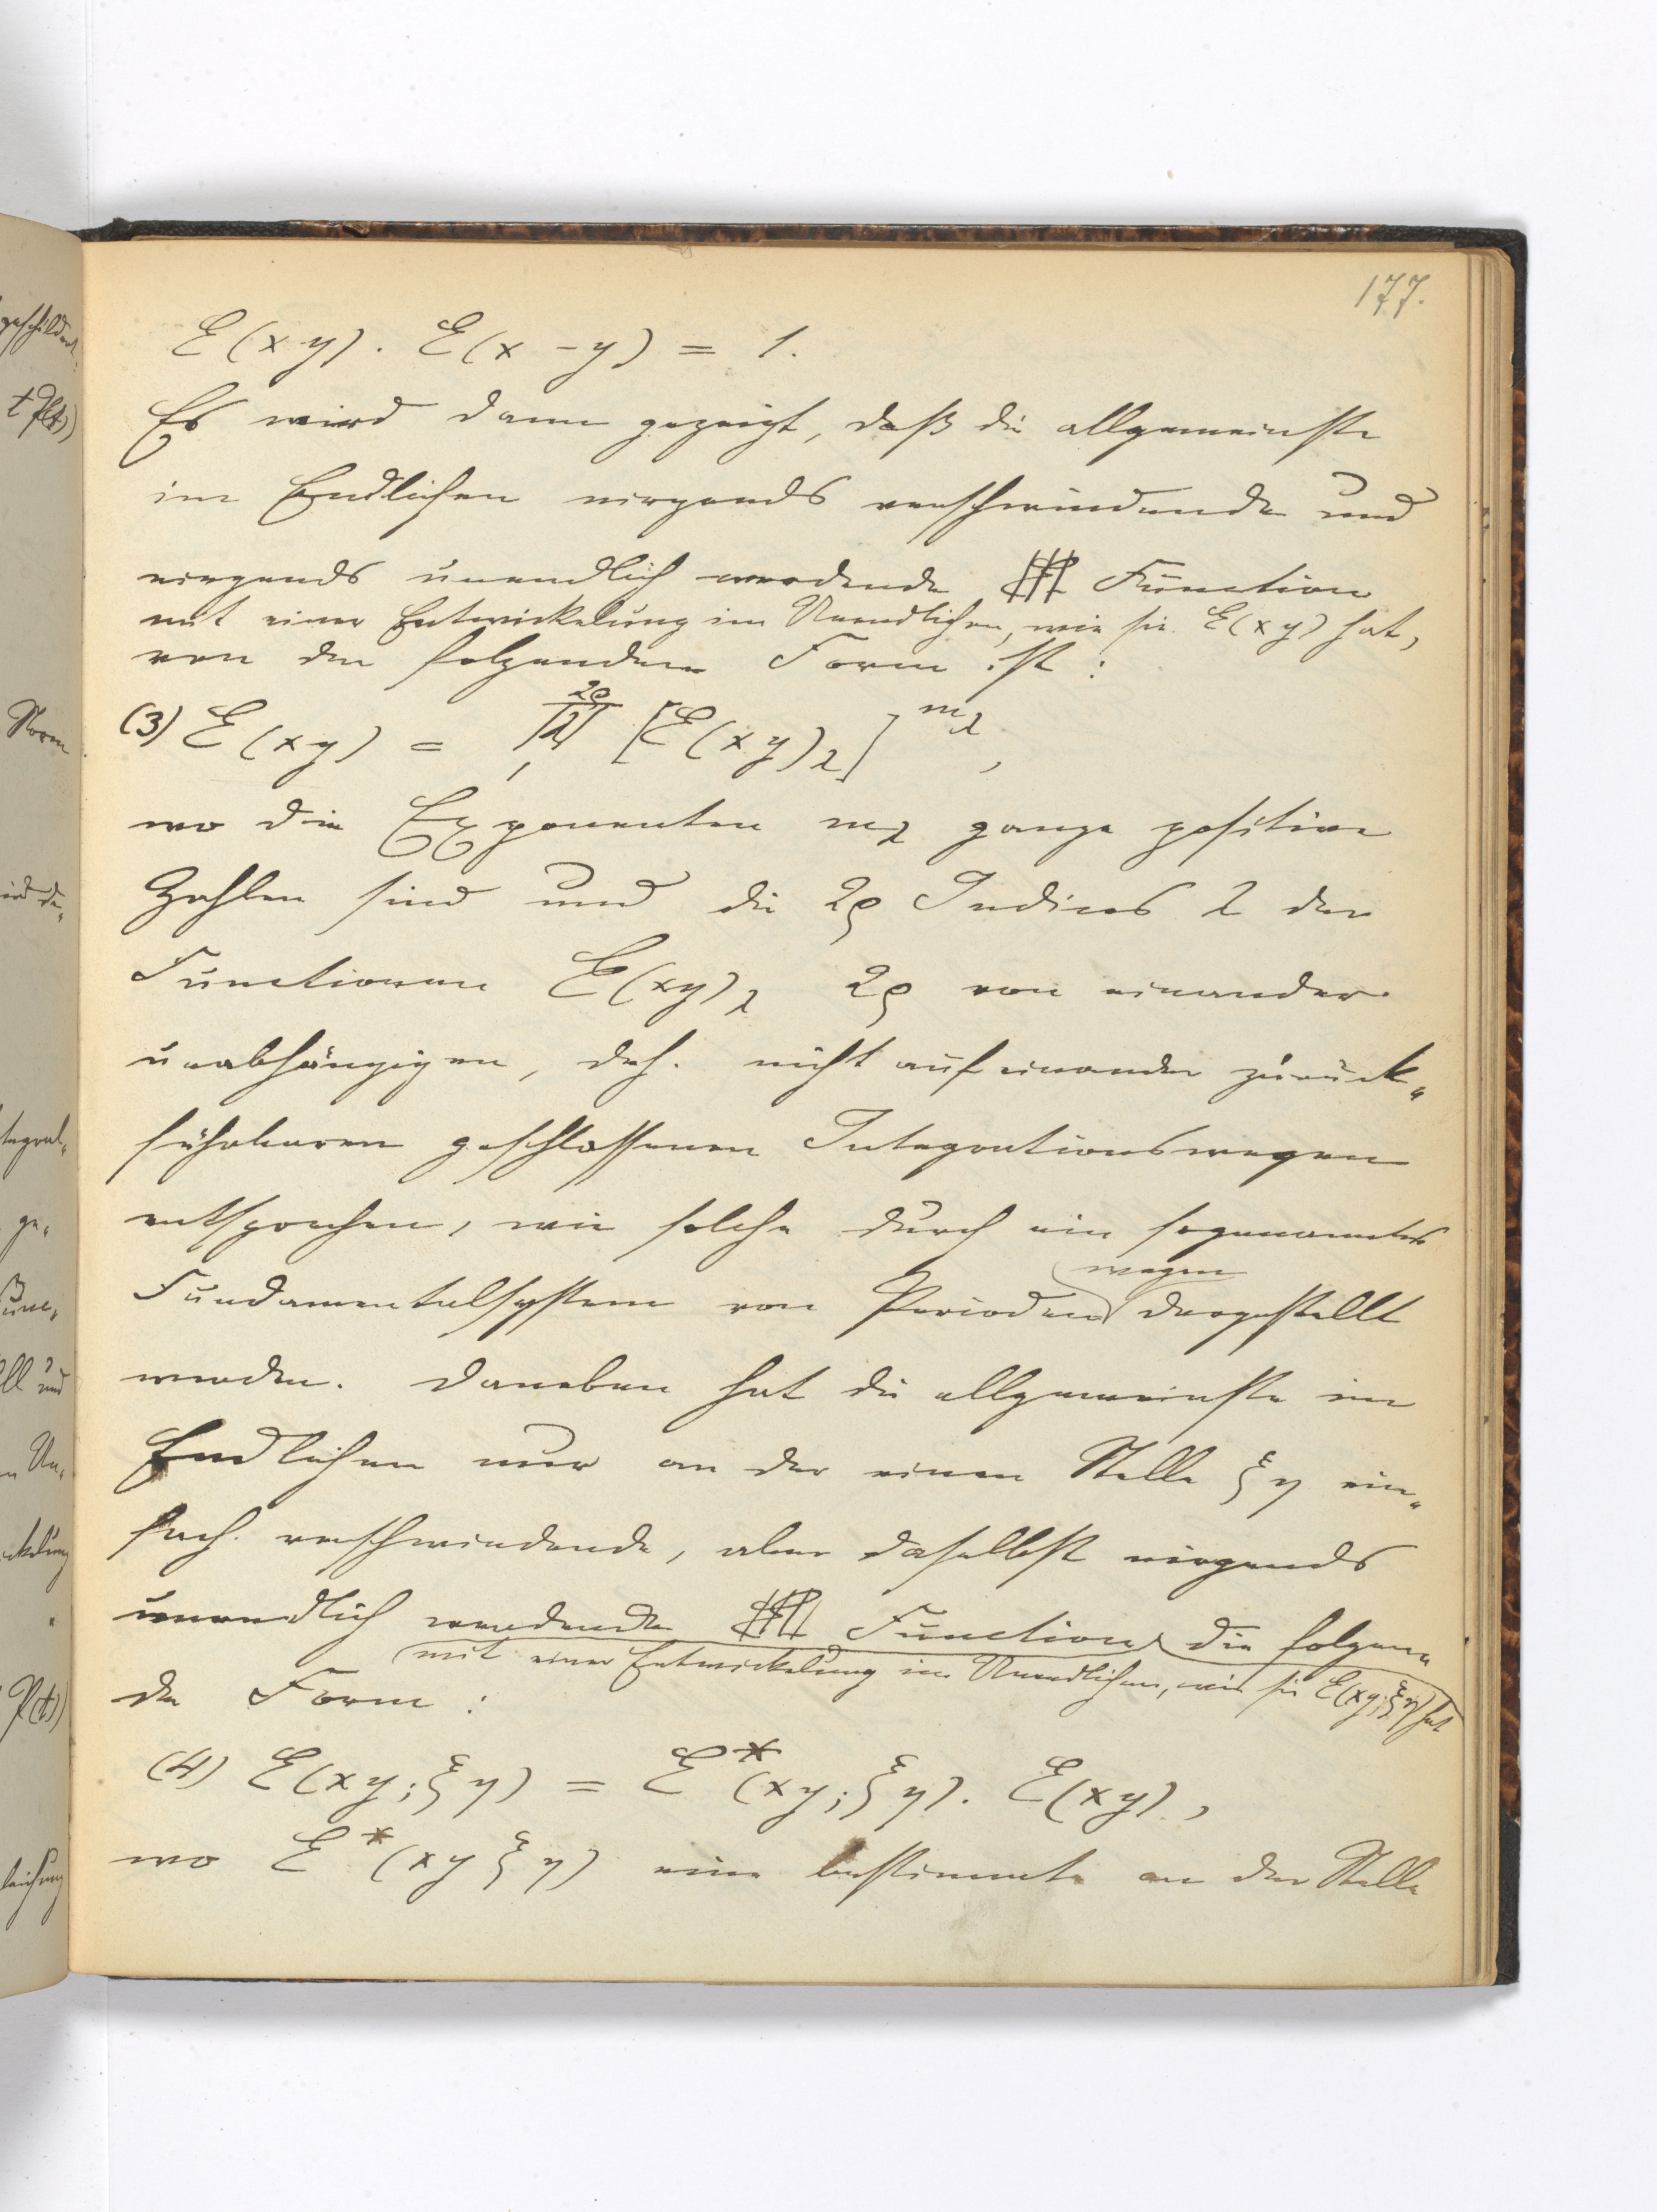 177.
E(xy). E(x -y) = 1.
Es wird dann gezeigt, daß die allgemeinste
im Endlichen nirgends verschwindende und
nirgends unendlich werdende Function
mit einer Entwickelung im Unendlichen, wie sie E(xy) hat,
von der folgenden Form ist:
(3) E(xy) = ∏ [E(xy)λ]^mλ,
2ϱ
1
wo die Exponenten mλ ganze positive
Zahlen sind und die 2ϱ Indices λ der
Functionen E(xy)λ 2ϱ von einander
unabhängigen, d.h. nicht auf einander zurück„
führbaren geschlossenen Integrationswegen
entsprechen, wie solche durch ein sogenanntes
wegen
Fundamentalsystem von Perioden dargestellt
werden. Daneben hat die allgemeinste im
Endlichen nur an der einen Stelle ξη ein„
fach verschwindende, aber daselbst nirgends
unendlich werdende Function die folgen„
mit einer Entwickelung im Unendlichen, wie sie E(xy;ξη) hat
de Form:
(4) E(xy;ξη) = E*(xy;ξη). E(xy),
wo E*(xy ξη) eine bestimmte an der Stelle
geschildert
t P(t))
Norm
wird de„
tegral„
ge„
Func„
ll und
n Un„
ckelung
P(t))
leichung